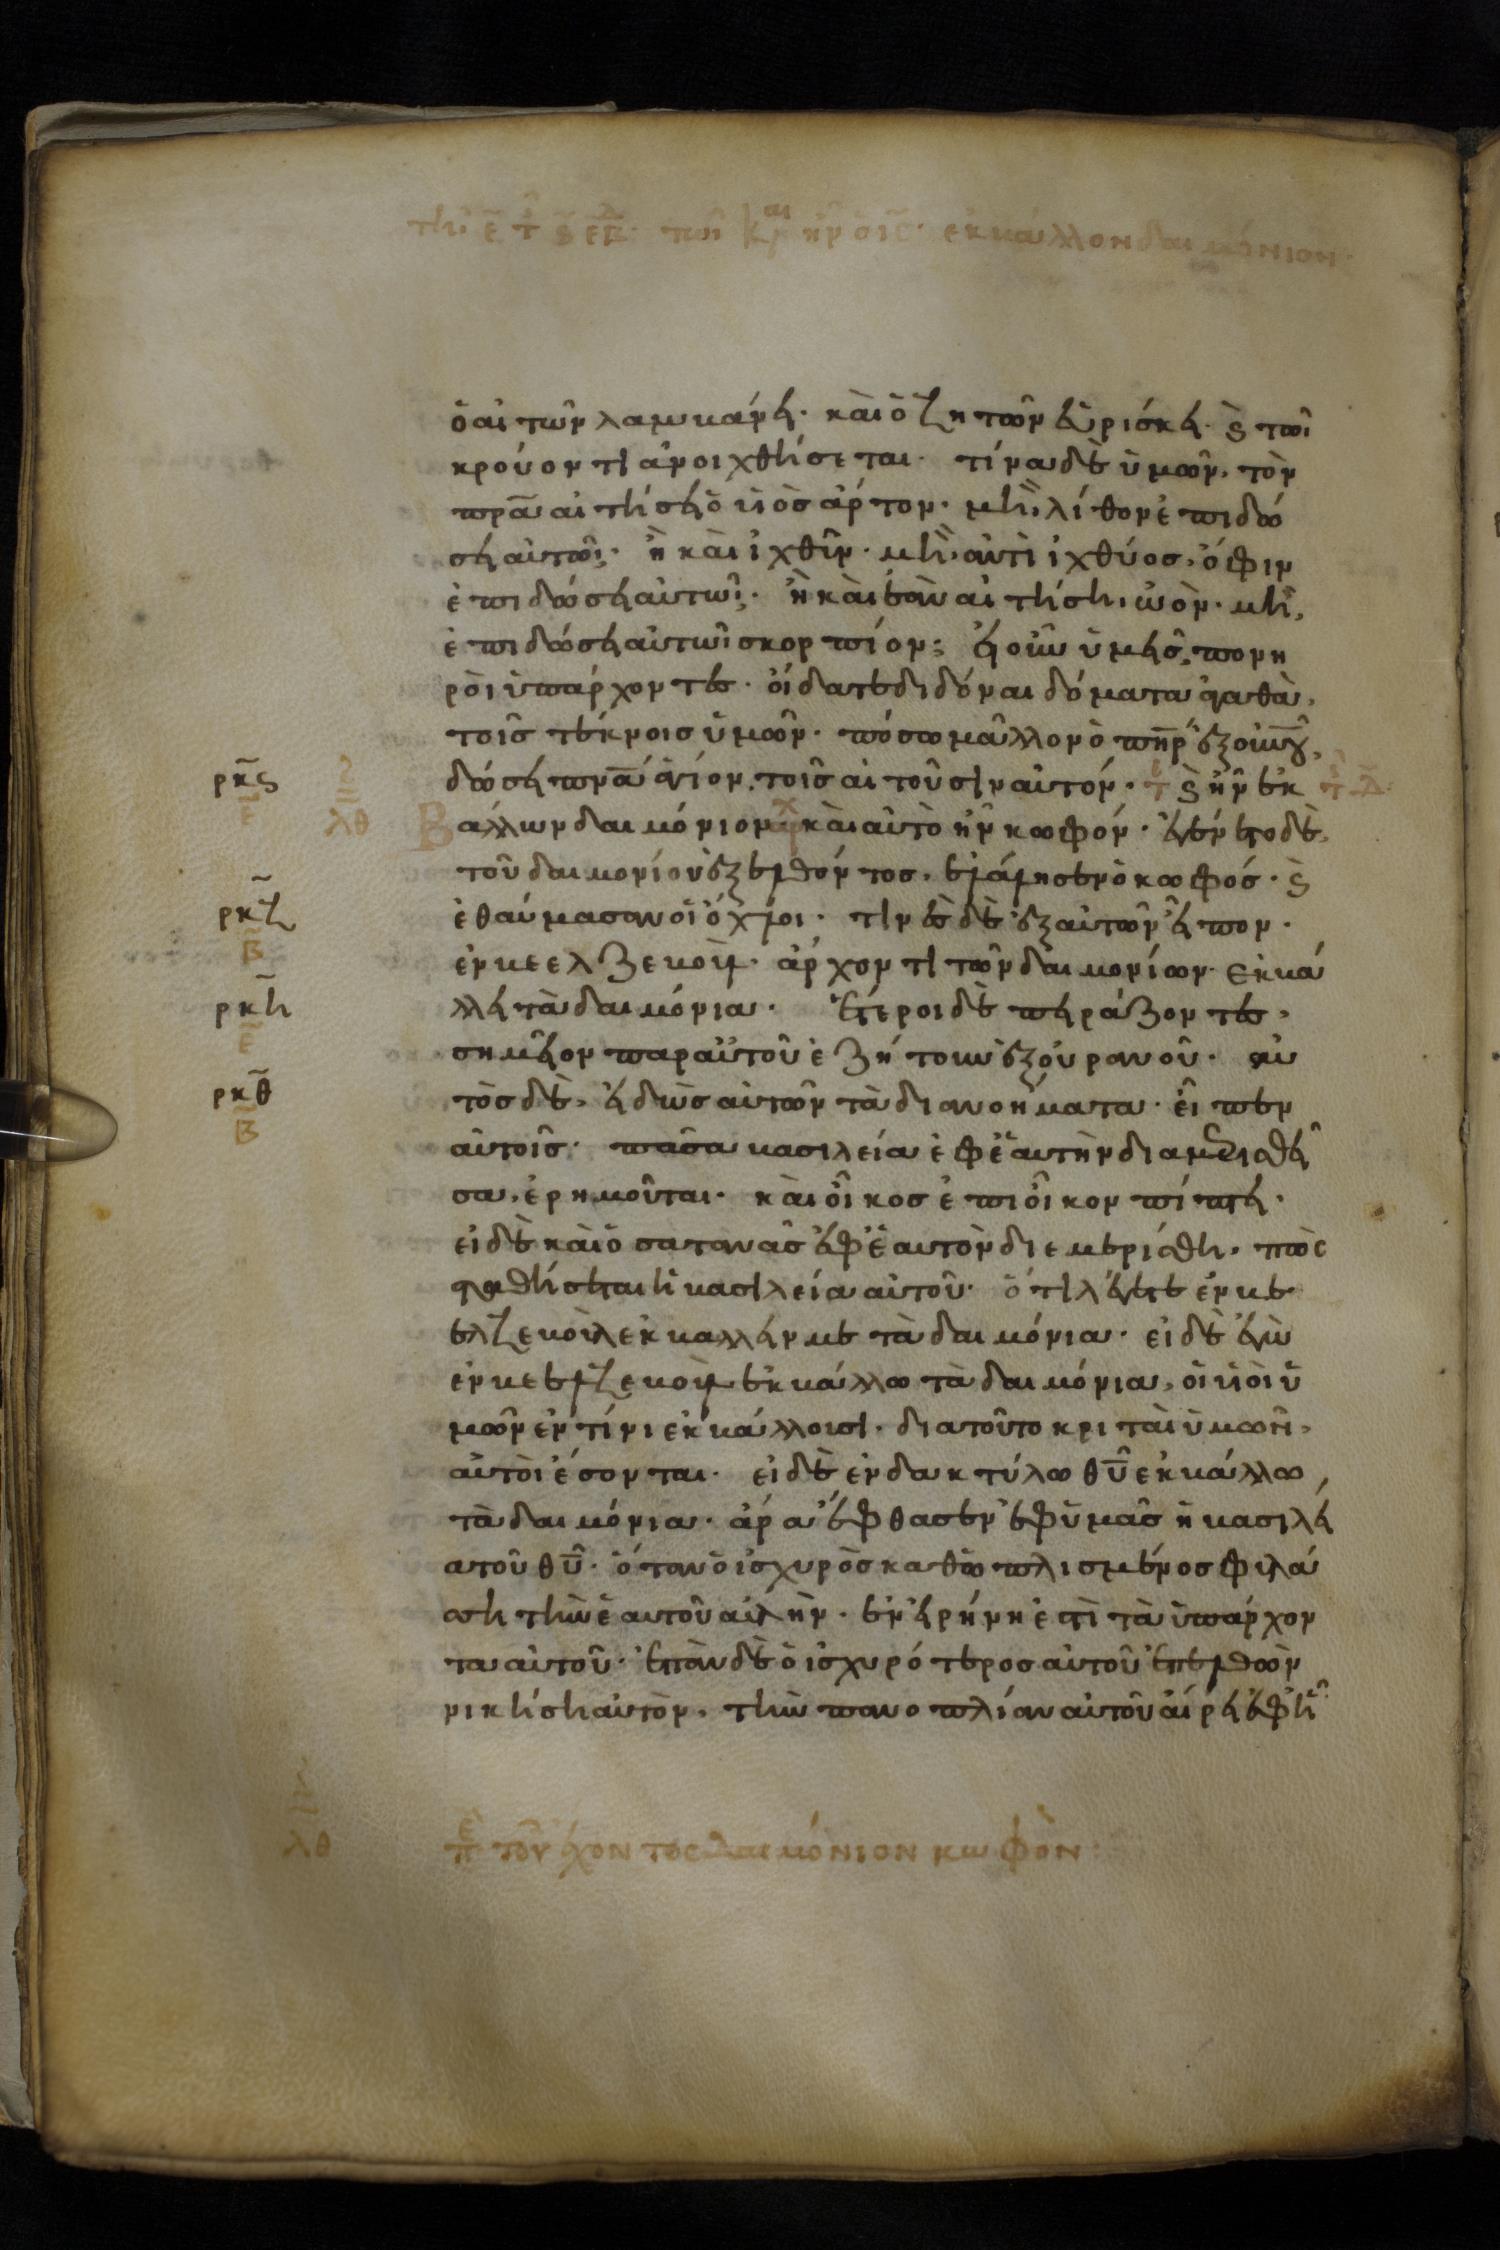 ὁ αἰτῶν λαμβάνει· καὶ ὁ ζητῶν εὑρίσκει· ϗ τῶι
κρούοντι ἀνοιχθήσεται· τίνα δὲ ὑμῶν, τὸν
πρ̅α αἰτήσει ὁ υἱὸς ἄρτον· μὴ λίθον ἐπιδώ
σει αὐτῶι; ἢ καὶ ἰχθῦν· μὴ ἀντὶ ἰχθύος, ὄφιν
ἐπιδώσει αὐτῶι; ἢ καὶ ἐὰν αἰτήση ὠὸν· μὴ
ἐπιδώσει αὐτῶι σκορπίον; εἰ οὖν ὑμεῖς, πονη
ροὶ ὑπάρχοντες· οἴδατε διδόναι δόματα ἀγαθὰ,
τοῖς τέκνοις ὑμῶν· πόσω μᾶλλον ὁ πη̅ρ ἐξ οὐνοῦ,
ρκ̅ς δώσει πνα̅ ἅγιον, τοῖς αἰτοῦσιν αὐτόν· ϗ ἦν ἐκ
λθ Βάλλων δαιμόνιον· καὶ αὐτὸ ἦν κωφόν· ἐγένετο δὲ,
τοῦ δαιμονίου ἐξελθόντος, ἐλάλησεν ὁ κωφός· ϗ
ρκ̅ζ ἐθαύμασαν οἱ ὄχλοι· τινὲς δὲ ἐξ αὐτῶν εἶπον·
Β̅ ἐν βεελζεβοὺλ ἄρχοντι τῶν δαιμονίων· ἐκβά
ρκ̅η λλει τὰ δαιμόνια· ἕτεροι δὲ πειράζοντες,
σημεῖον παρ αὐτοῦ ἐζήτουν ἐξ οὐρανοῦ· αὐ
ρκ̅θ τὸς δὲ, εἰδὼς αὐτῶν τὰ διανοήματα· εἶπεν
Β̅ αὐτοῖς· πᾶσα βασιλεία ἐφ ἑαυτὴν διαμερισθεῖ
σα, ἐρημοῦται· καὶ οἶκος ἐπὶ οἶκον πίπτει·
εἰ δὲ καὶ ὁ σατανᾶς ἐφ ἑαυτὸν διεμερίσθη, πῶς
σταθήσεται ἡ βασιλεία αὐτοῦ· ὅτι λέγετε ἐν βε
ελζεβοὺλ ἐκβαλλειν με τὰ δαιμόνια· εἰ δὲ ἐγὼ
ἐν βεελζεβοὺλ ἐκβάλλω τὰ δαιμόνια, οἱ υἱοὶ ὑ
μῶν ἐν τίνι ἐκβάλλουσι· διατοῦτο κριταὶ ὑμῶν,
αὐτοὶ ἔσονται· εἰ δὲ ἐν δακτύλω θυ̅ ἐκβάλλω
τὰ δαιμόνια· ἄρα ἔφθασεν ἐφ ὑμᾶς ἡ βασιλεί
α τοῦ θυ̅· ὅταν ὁ ἰσχυρὸς καθωπλισμένος φυλά
σση τὴν ἑαυτοῦ αὐλὴν· ἐν εἰρήνη ἐστὶ τὰ ὑπάρχον
τα αὐτοῦ· ἐπὰν δὲ ὁ ἰσχυρότερος αὐτοῦ ἐπελθὼν
νικήση αὐτὸν, τὴν πανοπλίαν αὐτοῦ αἴρει ἐφ ἧ
λθ π̅ε τοῦ ἔχοντος δαιμόνιον κωφὸν: